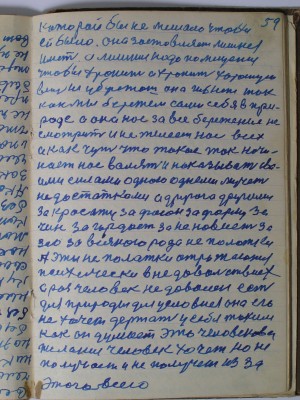 59
которой бы не мешало чтобы
ей было. она заставляет
и лишни надо помещения
чтобы хранить и хранить хорошую
вещь на
как мы бережем сами себя в при-
роде а она нас за все бережение не
смотрит и не жалеет нас всех
а как чуть что такое так начи-
нает нас валять и наказывать сво-
ими силами одного одними
недостатками а другого другими
За красоту за фасон за форму За
чин за гордость за ненависть за
зло за всякого рода неполадки
А эти неполадки отражаются
психически в недовольствиях
Раз человек недоволен есть
для природы для условиев она его
не хочет держать у себя таким
как он думает Это человекова
желания человек хочет но не
получает и не получит из За
Этого всего